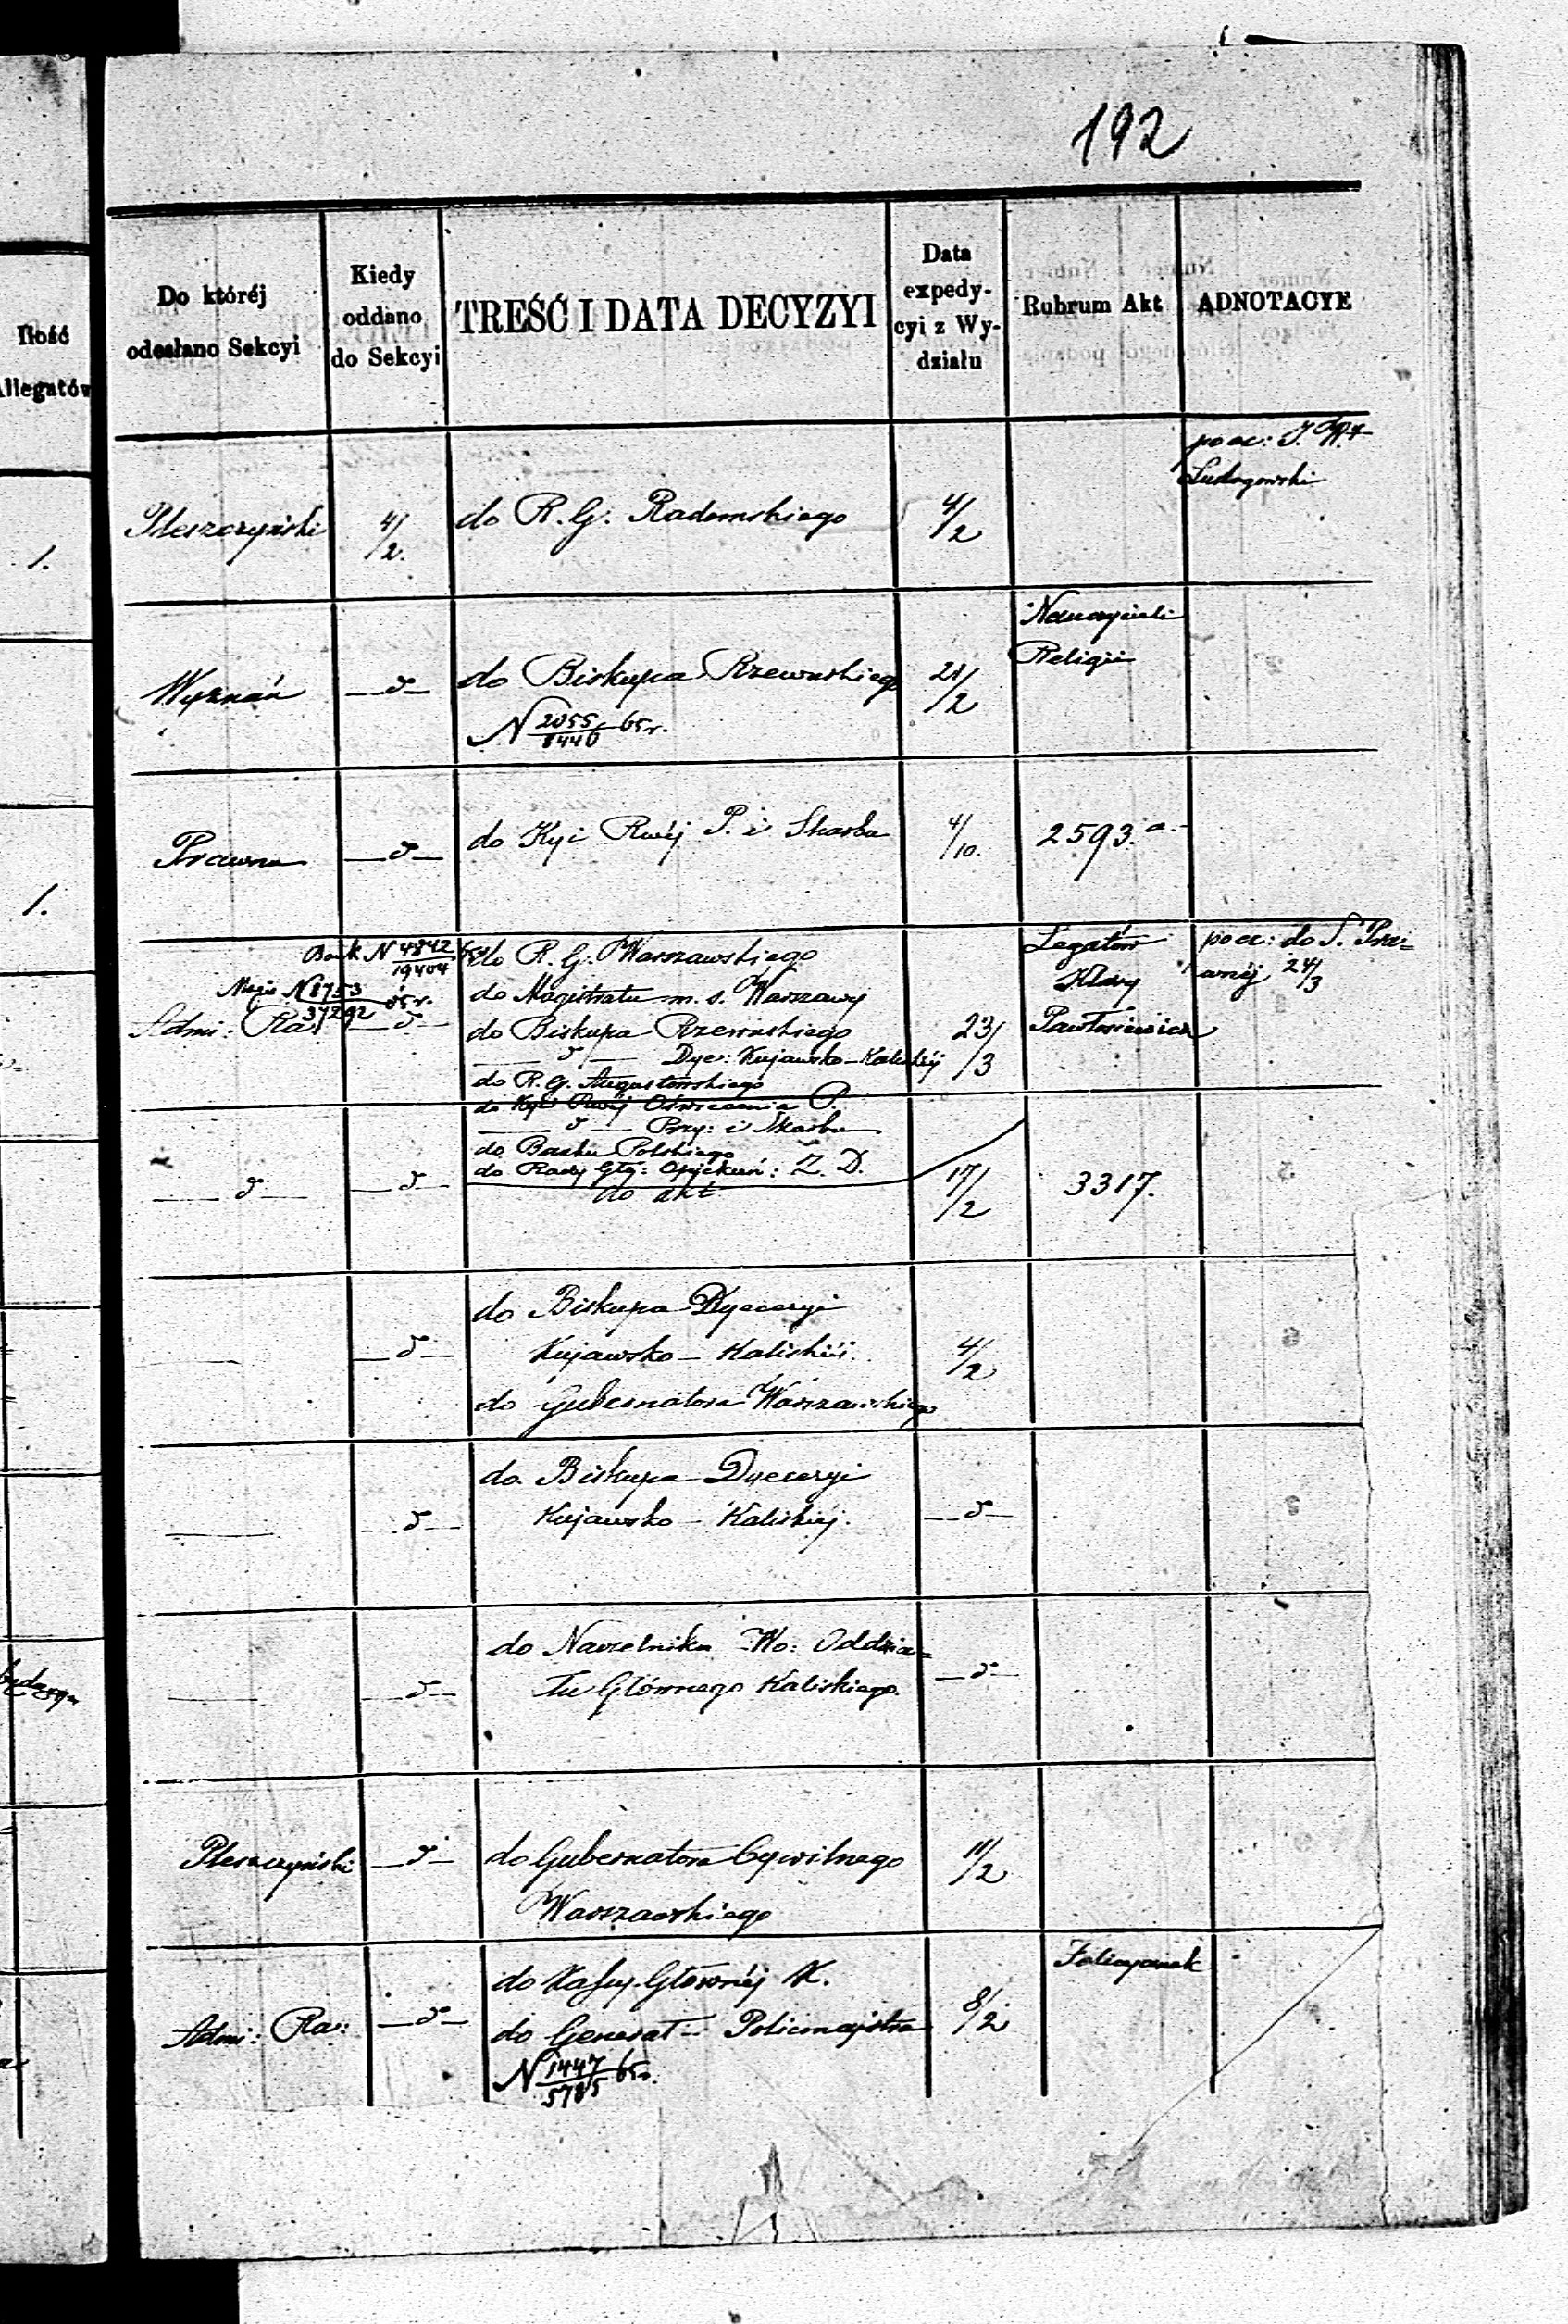 192
Ilość
Allegatów
Do któréj
odesłano Sekcyi
Kiedy
oddano
do Sekcyi
TREŚĆ I DATA DECYZYI
Data
expedy-
cyi z Wy-
działu
Rubrum Akt
ADNOTACYE
1.
Pleszczyński
4/2.
do R. G. Radomskiego
4/2
po ec: J. W.
Wyznań
—d—
do Biskupa Rzewuskiego
N 2055/8446 65r.
21/2
Nauczycieli
Religii
1.
Prawna
—d—
do Kyi Rwéj P. i Skarbu
4/10.
2593.a.
Bank. N 4842/19404 65r
Magis N 8753/37292 65r.
Admi: Ra:
—d—
do R. G. Warszawskiego
do Magistratu m. s. Warszawy
do Biskupa Rzewuskiego
—d— Dyec: Kujawsko-Kaliskiéj
do R. G. Augustowskiego
do Kyi Rwéj Oświecenia P.
—d— Przy: i Skarbu
do Banku Polskiego
do Rady Głó: Opiekuń: Z. D.
23/3
Legatów
Klary
Pawłosiewicz
po ec: do S. Pra=
wnéj 24/3
—d—
—d—
do akt
17/2
3317.
—d—
do Biskupa Dyecezyi
Kujawsko-Kaliskiéj.
do Gubernatora Warszawskiego
4/2
—d—
do Biskupa Dyecezyi
Kujawsko-Kaliskiéj.
—d—
—d—
do Naczelnika Wo: Oddzia=
łu Głównego Kaliskiego.
—d—
Pleszczyński
—d—
do Gubernatora Cywilnego
Warszawskiego
11/2
Admi: Ra:
—d—
do Kassy Głównéj K.
do Generał-Policmajstra
N 1447/5785 65r.
8/2
Felicyanek